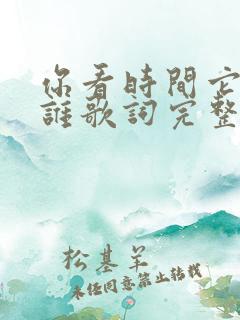 你看時間它
誰歌詞完整
松基羊
未經同意禁止轉載